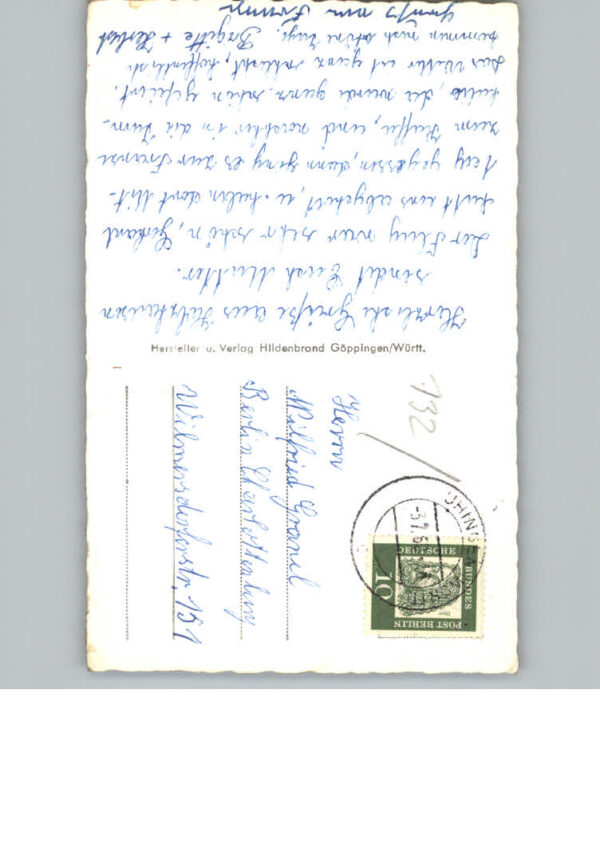 Herzliche Grüße aus Holzhausen
sendet Euch Mutter.
Der Flug war sehr schön, Gerhard
hat uns abgeholt, u. haben dort Mit-
tag gegessen, dann ging es zur
zum Kaffee, und nachher in die
da wurde ganz schön gefeiert.
Das Wetter ist ganz schlecht, hoffentlich
kommen noch schöne Tage. Brigitte +
Gruß von
Hersteller u. Verlag Hildenbrand Göppingen/Württ.
132
Herrn
Wilfried
Berlin Charlottenburg
Wilmersdorferstr. 151
UHINGEN
-3.7.6
DEUTSCHE
BUNDES
POST BERLIN
10